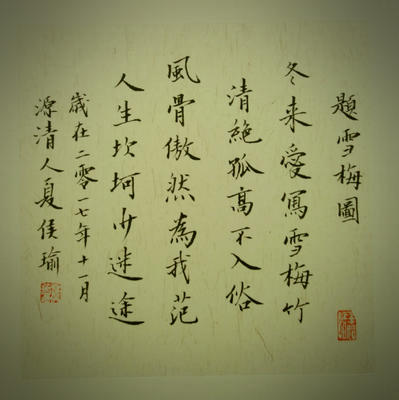 題雪梅圖
冬來愛寫雪梅竹
清絶孤高不入俗
風骨傲然為我范
人生坎坷少迷途
歲在二零一七年十一月
源清人夏侯瑜